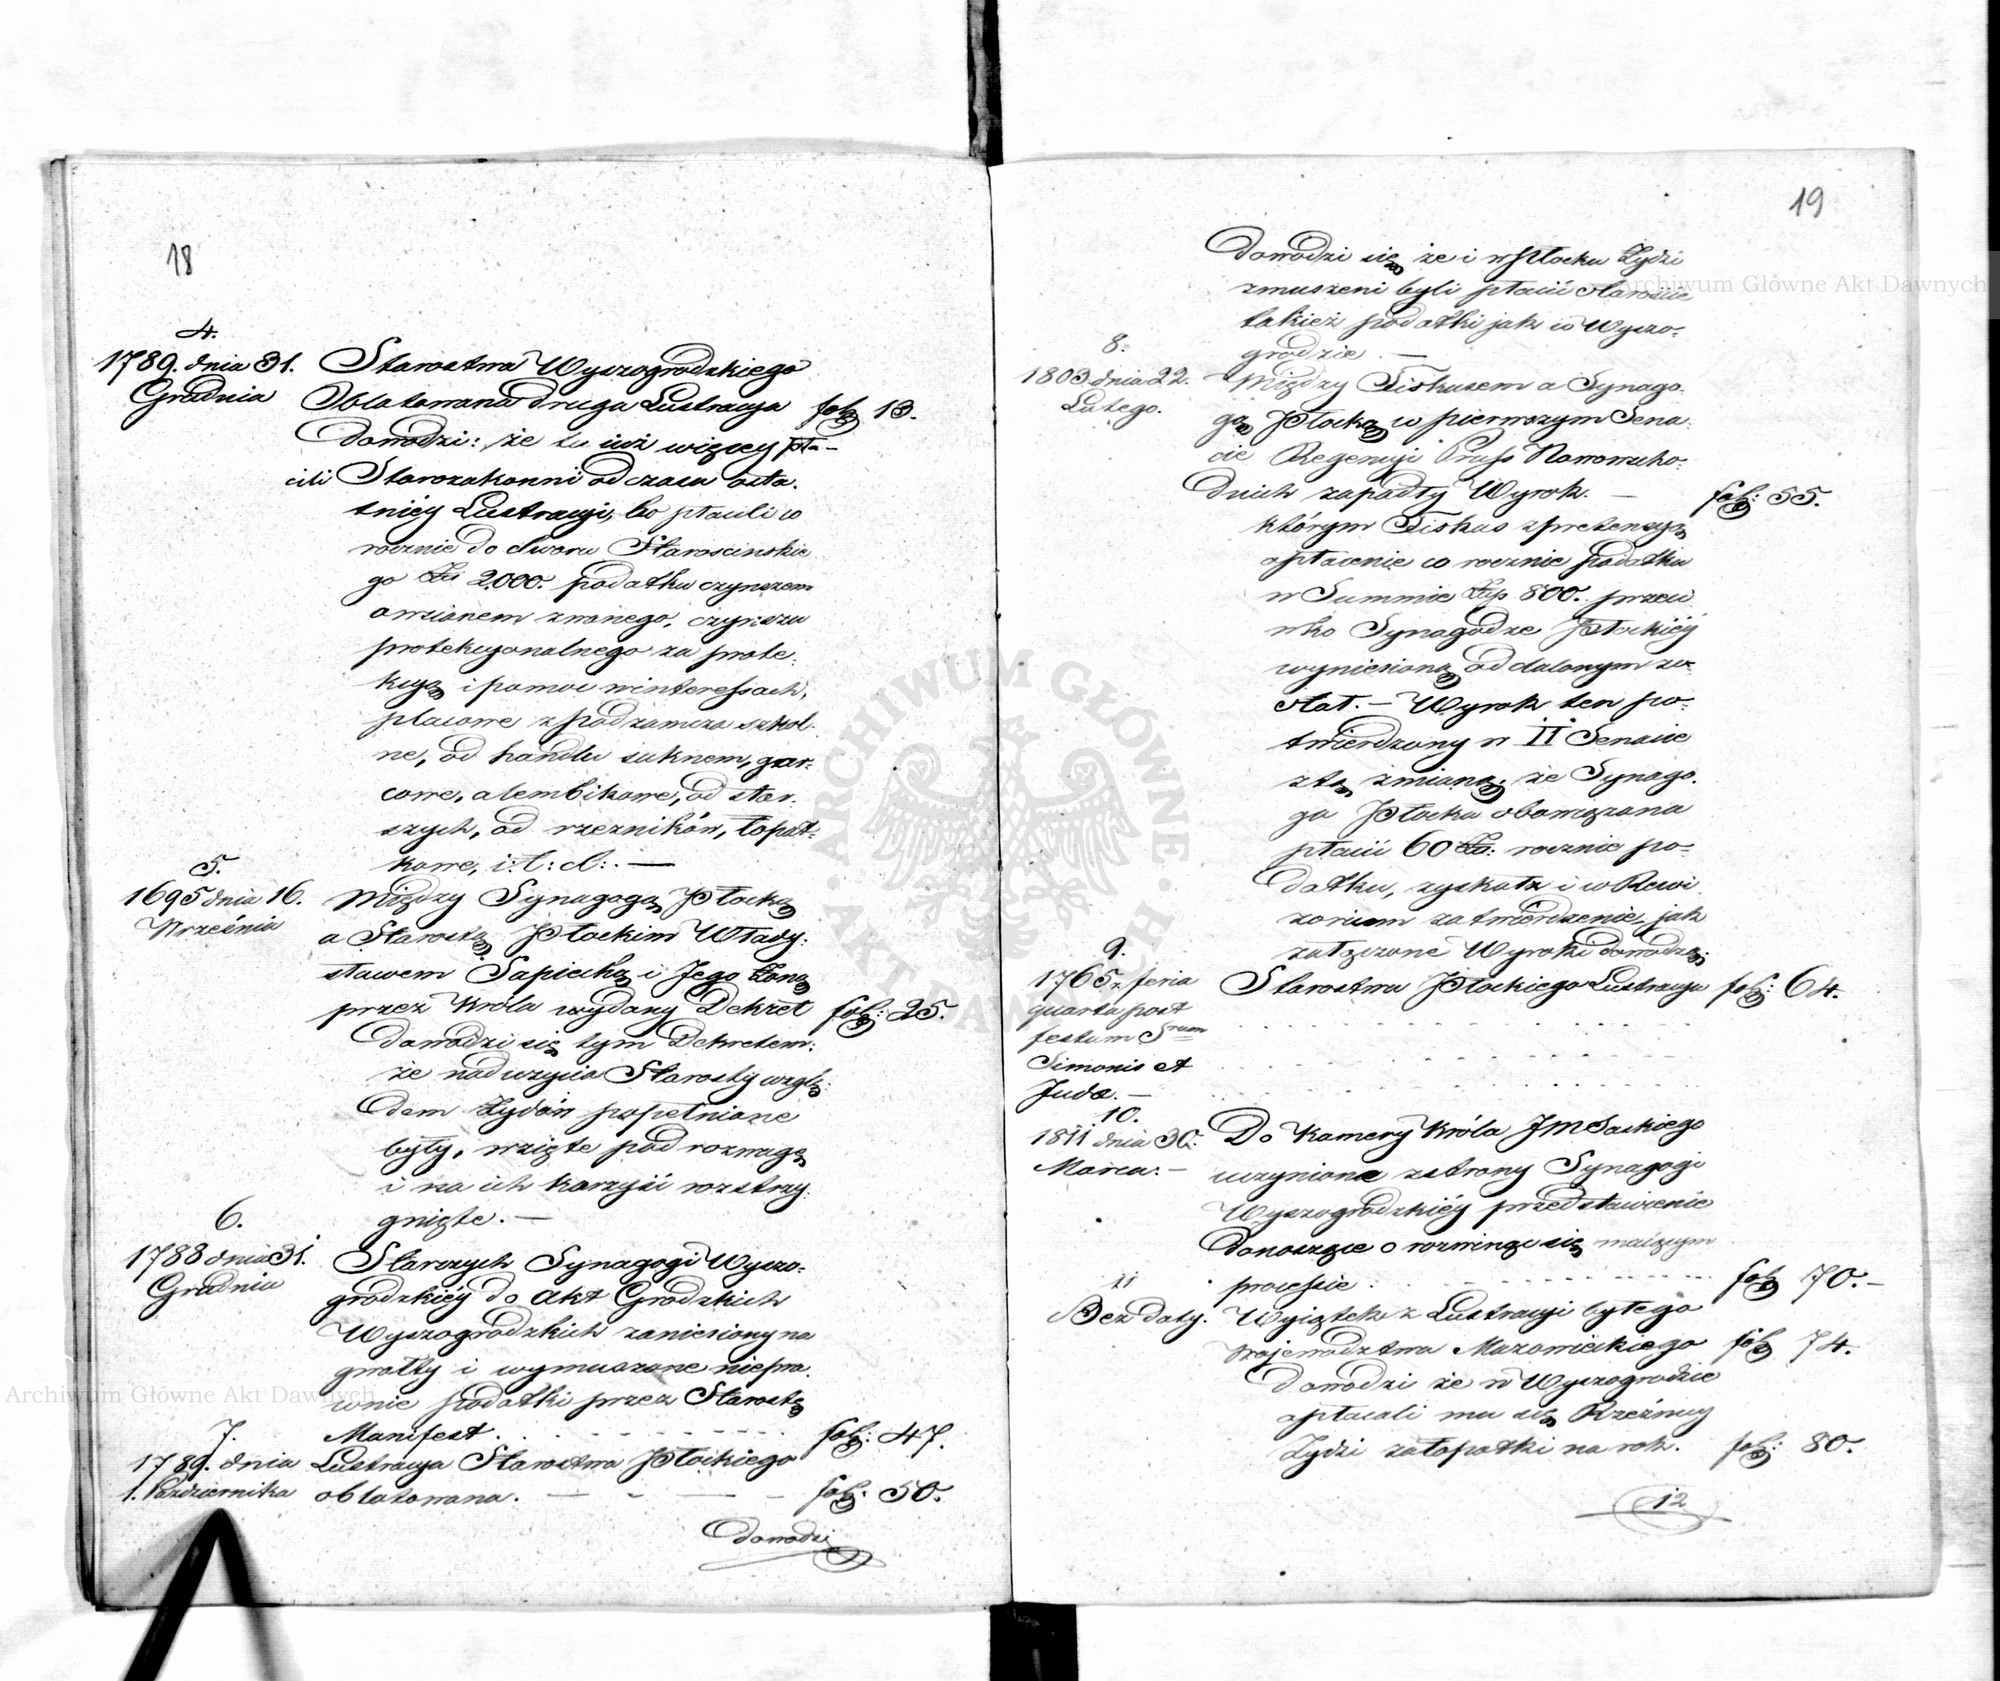 18
4.
1789. dnia 31. Starostwa Wyszogrodzkiego
Grudnia Oblatowana druga Lustracya fol: 13.
dowodzi: że tu już więcey pła-
cili Starozakonni od czasu osta-
tniéy Lustracyi, bo płacili co
rocznie do dworu Starościńskie
go Złp 2000. podatku czynszem
zwanego, czynszu
protekcyonalnego za prote-
kcyą i pomoc w interessach,
placowe z podzamcza szkol-
ne, od handlu suknem, gar-
cowe, alembikowe, od star-
szych, od rzezników, łopat-
kowe, i: t: d:. —
5.
1695 dnia 16. Między Synagogą Płocką
Września a Starostą Płockim Włady-
sławem Sapiehą i Jego Żoną
przez Króla wydany Dekret fol: 25.
Dowodzi się tym Dekretem:
że nadużycia Starosty wzglę-
dem Żydów popełnione
były, wzięte pod rozwagę
i na ich korzyść rozstrzy-
gnięte. —
6.
1788 dnia 31. Starszych Synagogi Wyszo-
Grudnia grodzkiéy do Akt Grodzkich
Wyszogrodzkich zaniesiony na
gwałty i wymuszone niepra-
wnie podatki przez Starostę
Manifest. fol: 47.
7.
1789. dnia Lustracya Starostwa Płockiego
1. Października oblatowana. — fol: 50.
Dowodzi
19
Dowodzi się że i w Płocku Żydzi
zmuszeni byli płacić Staroście
takież podatki jak w Wyszo-
grodzie. —
8.
1803 dnia 22. Między Fiskusem a Synago-
Lutego. gą Płocką w pierwszym Sena-
cie Regencyi Pruss Nowowscho-
dnich zapadły Wyrok. — fol: 55.
którym Fiskus z pretensyą
opłacenie co rocznie podatku
w Summie Złp 800. przeci
wko Synagodze Płockiéy
wyniesioną oddalonym zo-
stał. — Wyrok ten po-
twierdzony w II Senacie
z tą zmianą; że Synago-
ga Płocka obowiązana
płacić 60 rocznie po-
datku, zyskała i w Rewi
zorium zatwierdzenie, jak
załączone Wyroki dowodzą;
9.
1765 r. feria Starostwa Płockiego Lustracya fol: 64.
quarta post
festum Srum
Simonis et
Judæ. —
10.
1811 dnia 30. Do Kamery Króla JM Saskiego
Marca. — uczynione z strony Synagogi
Wyszogrodzkiéy przedstawienie
donoszące o rozwinąć się maiącym
processie. fol: 70. —
11
Bez daty. Wyiątek z Lustracyi byłego
Województwa Mazowieckiego fol: 74.
Dowodzi że w Wyszogrodzie
opłacali mu się Rzeźnicy
Żydzi za łopatki na rok. fol: 80.
12
Archiwum Główne Akt Dawnych
Archiwum Główne Akt Dawnych
ARCHIWUM GŁÓWNE AKT DAWNYCH